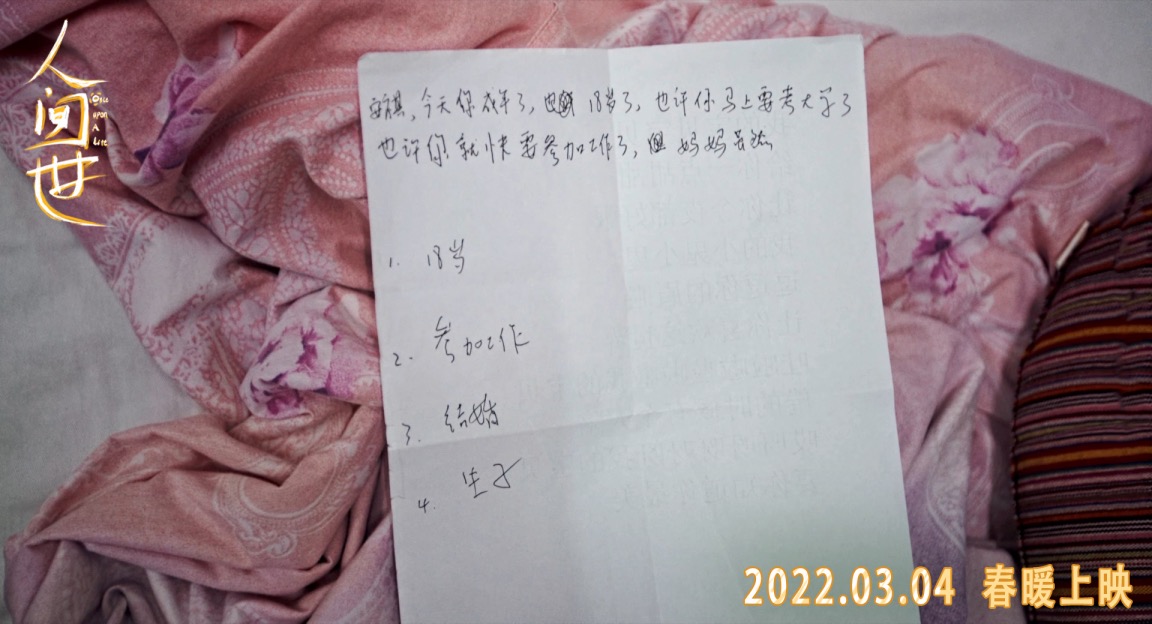 人间世
Once
upon
A
life
今天你成年了, 18岁了, 也许你马上要考大学了
也许你就快要参加工作了, 妈妈虽然
1. 18岁
2. 参加工作
3. 结婚
4. 生子
2022.03.04 春暖上映